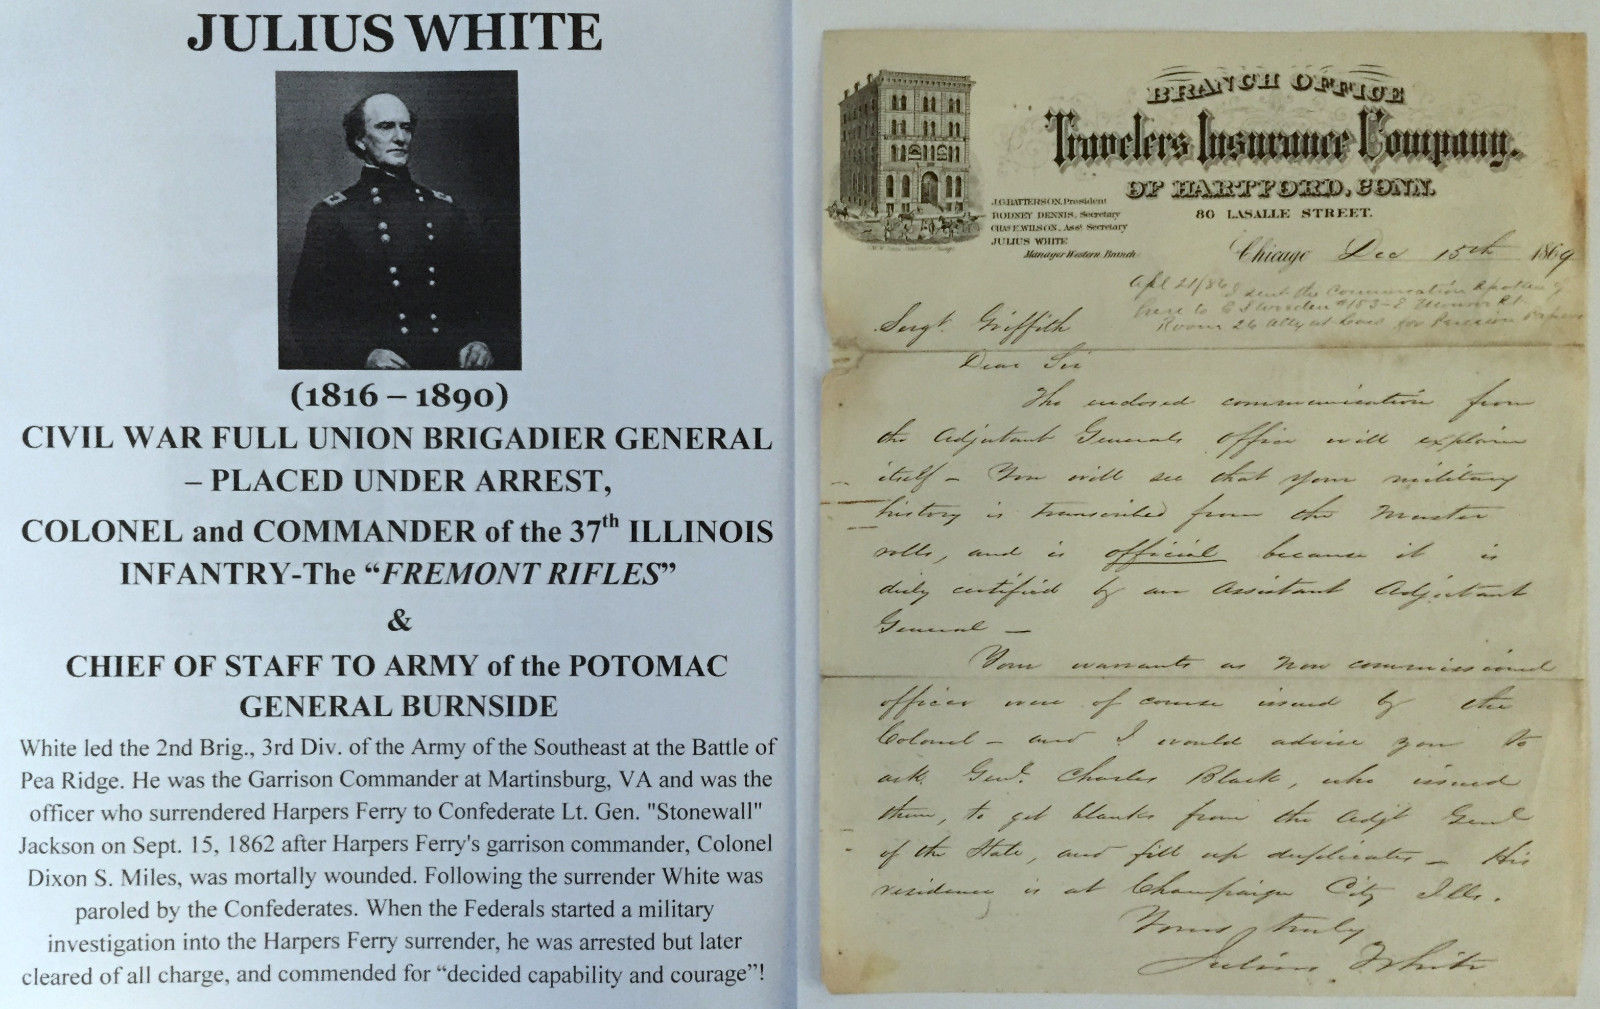 JULIUS WHITE
(1816 – 1890)
CIVIL WAR FULL UNION BRIGADIER GENERAL
– PLACED UNDER ARREST,
COLONEL and COMMANDER of the 37th ILLINOIS
INFANTRY-The “FREMONT RIFLES”
&
CHIEF OF STAFF TO ARMY of the POTOMAC
GENERAL BURNSIDE
White led the 2nd Brig., 3rd Div. of the Army of the Southeast at the Battle of
Pea Ridge. He was the Garrison Commander at Martinsburg, VA and was the
officer who surrendered Harpers Ferry to Confederate Lt. Gen. "Stonewall"
Jackson on Sept. 15, 1862 after Harpers Ferry's garrison commander, Colonel
Dixon S. Miles, was mortally wounded. Following the surrender White was
paroled by the Confederates. When the Federals started a military
investigation into the Harpers Ferry surrender, he was arrested but later
cleared of all charge, and commended for “decided capability and courage”!
BRANCH OFFICE
Travelers Insurance Company.
OF HARTFORD, CONN.
80 LASALLE STREET.
J.G. BATTERSON, President
RODNEY DENNIS, Secretary
CHAS. E. WILSON, Asst Secretary
JULIUS WHITE
Manager Western Branch
Chicago Dec 15th 1869
Apl 21/86 I sent the communication spoken of
here to
Room 26 Atty at Law for Pension
Sergt. Griffith
Dear Sir
The enclosed communication from
the Adjutant Generals office will explain
itself – You will see that your military
history is transcribed from the Muster
rolls, and is official because it is
duly certified by an Assistant Adjutant
General –
Your warrants as non commissioned
officer were of course issued by the
Colonel – and I would advise you to
ask Genl. Charles Black, who issued
them, to get blanks from the Adjt Genl
of the State, and fill up duplicates – His
residence is at Champaign City Ills.
Yours truly
Julius White